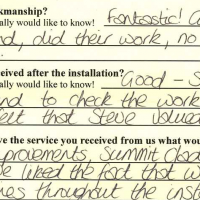 kmanship?
ally would like to know! Fantastic! C
nd, did their work, no
ceived after the installation?
ally would like to know! Good - S
and to check the work
felt that Steve valued
ve the service you received from us what wou
provements, Summit Clad
We liked the fact that w
mes throughout the inst